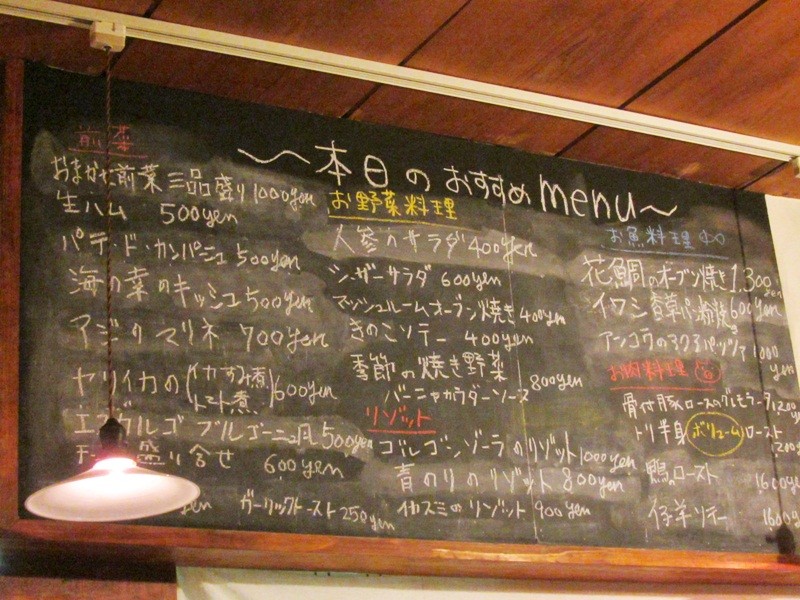 〜本日のおすすめmenu〜
前菜
おまかせ前菜三品盛り1000yen
生ハム 500yen
パテ・ド・カンパーニュ 500yen
海の幸のキッシュ500yen
アジのマリネ 700yen
ヤリイカの(イカすみ煮 トマト煮)600yen
エスカルゴ ブルゴーニュ風 500yen
盛り合せ 600yen
ガーリックトースト250yen
お野菜料理
人参のサラダ400yen
シーザーサラダ 600yen
マッシュルームオーブン焼き400yen
きのこソテー 400yen
季節の焼き野菜
バーニャカウダーソース 800yen
リゾット
ゴルゴンゾーラのリゾット1000yen
青のりのリゾット 800yen
イカスミのリゾット 900yen
お魚料理
花鯛のオーブン焼き1,300yen
イワシ香草パン粉焼き600yen
1000yen
お肉料理
骨付豚ロースの
トリ半身 ボリューム ロースト
鴨のロースト 1600
仔羊ソテー 1600